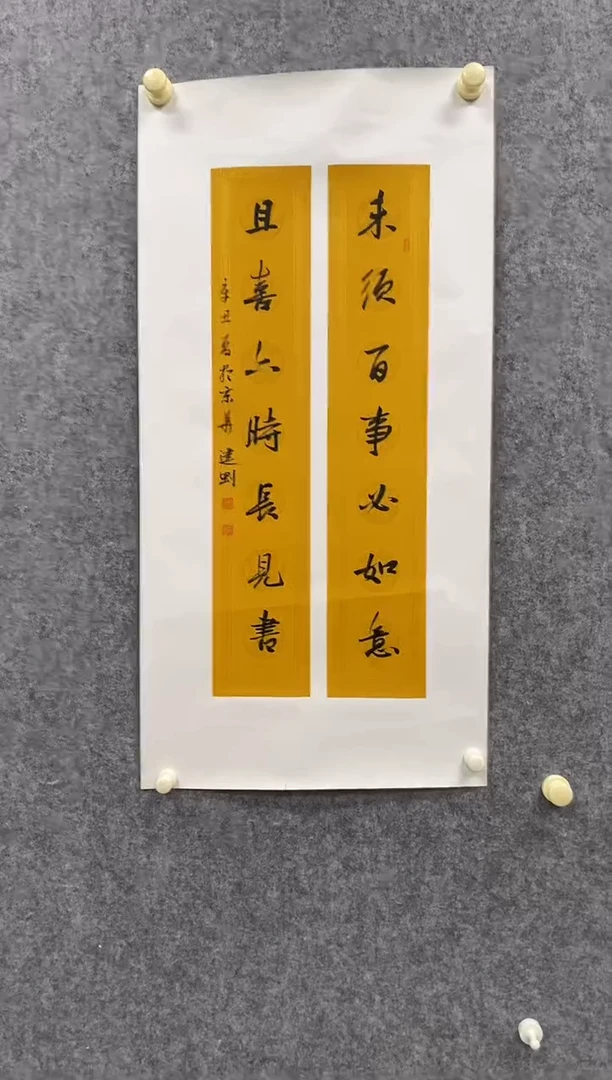 未须百事必如意
且喜六時長見書
辛丑書於京華 建剛